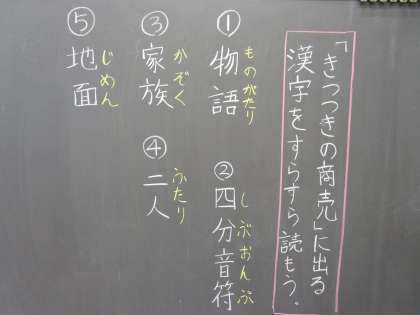 「きつつきの商売」に出る
漢字をすらすら読もう。
①物語
ものがたり
②四分音符
しぶおんぷ
③家族
かぞく
④二人
ふたり
⑤地面
じめん